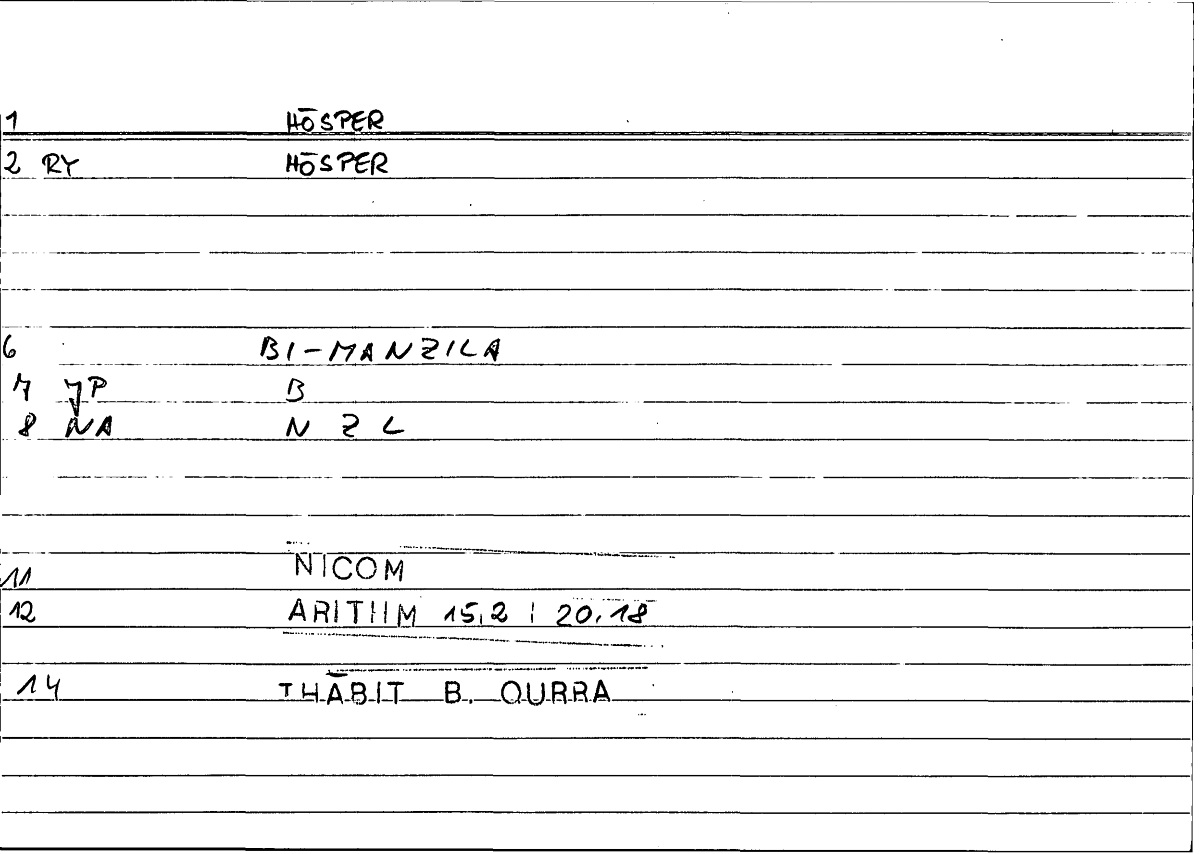 1 HŌSPER
2 RY HŌSPER
6 BI-MANZILA
7 JP B
8 NA N Z L
11 NICOM
12 ARITHM 15,2 | 20,18
14 THĀBIT B. QURRA